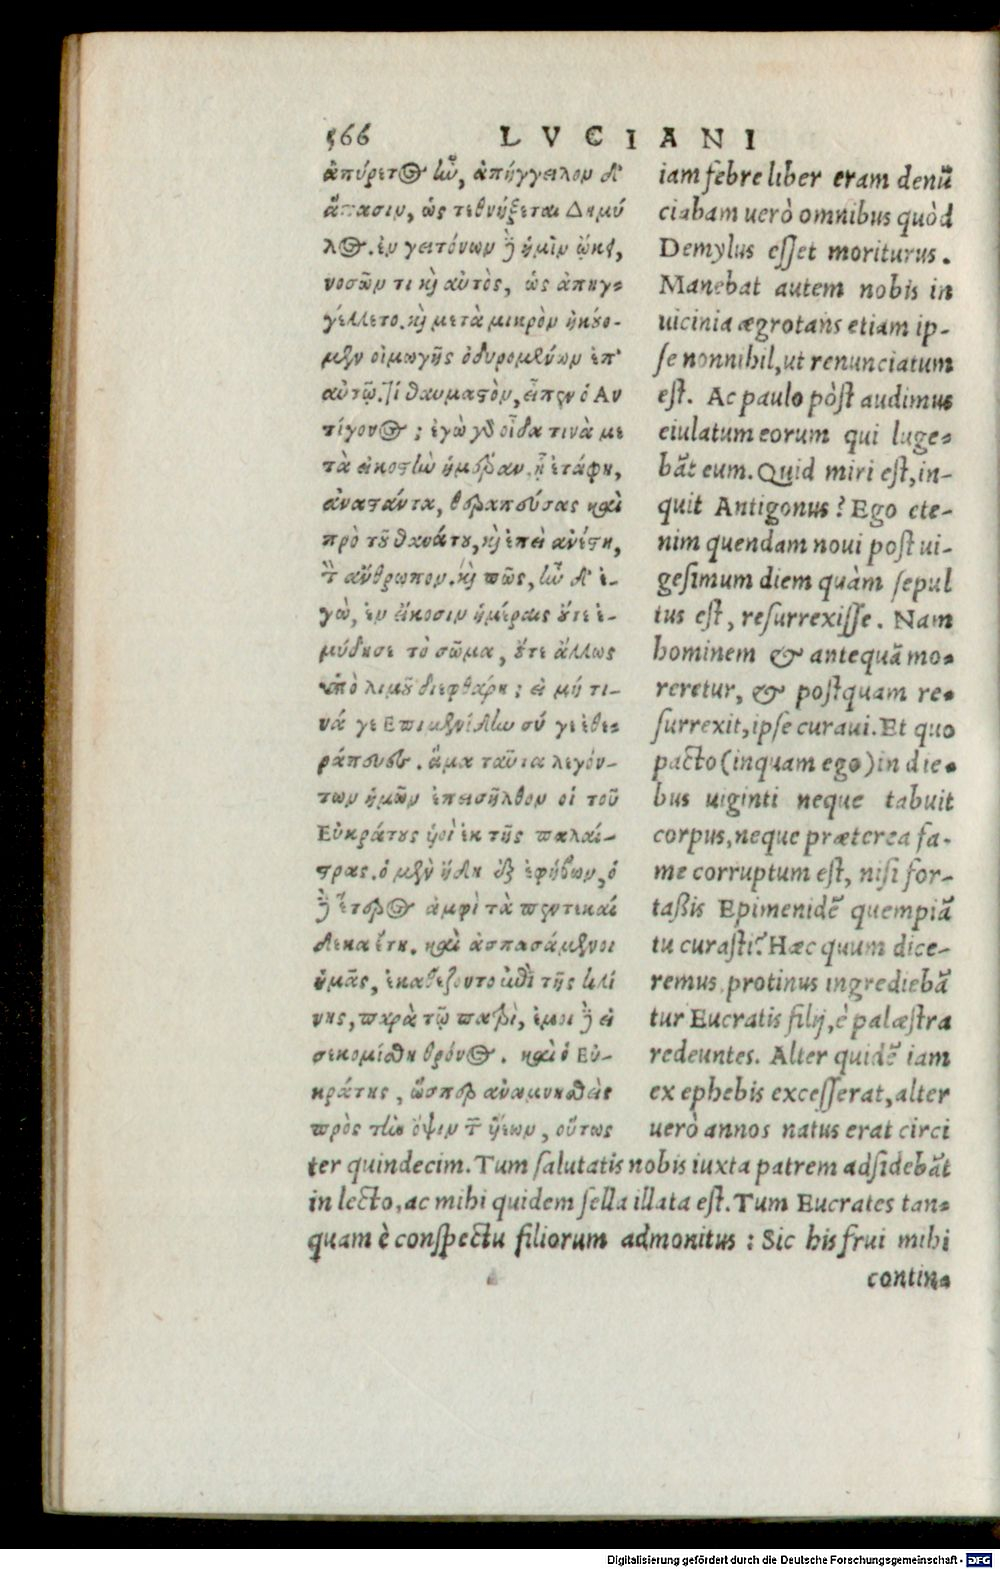 566 LVCIANI
ἀπύρετος ἦν, ἀπήγγελλον δ'
ἅπασιν, ὡς τεθνήξεται Δημύ
λος. ἐν γειτόνων δὲ ἡμῖν ᾤκει,
νοσῶν τι καὶ αὐτὸς, ὡς ἀπηγ-
γέλλετο. καὶ μετὰ μικρὸν ἠκούο-
μεν οἰμωγῆς ὀδυρομένων ἐπ'
αὐτῷ. Τί θαυμαστὸν, εἶπεν ὁ Αν
τίγονος; ἐγὼ γὰρ οἶδα τινὰ με
τὰ εἰκοστὴν ἡμέραν ἧ ἐτάφη,
ἀναστάντα, θεραπεύσας καὶ
πρὸ τοῦ θανάτου, καὶ ἐπεὶ ἀνέστη,
τὸν ἄνθρωπον. καὶ πῶς, ἦν δ' ἐ-
γὼ, ἐν εἴκοσιν ἡμέραις οὔτε ἐ-
μύδησε τὸ σῶμα, οὔτε ἄλλως
ὑπὸ λιμοῦ διεφθάρη; εἰ μή τι-
νά γε Επιμενίδην σύ γε ἐθε-
ράπευες. ἅμα ταῦτα λεγόν-
των ἡμῶν ἐπεισῆλθον οἱ τοῦ
Εὐκράτους υἱοὶ ἐκ τῆς παλαί-
στρας. ὁ μὲν ἤδη ἐξ ἐφήβων, ὁ
δὲ ἕτερος ἀμφὶ τὰ πεντεκαί
δεκα ἔτη. καὶ ἀσπασάμενοι
ἡμᾶς, ἐκαθέζοντο ἐπὶ τῆς κλί
νης, παρὰ τῷ πατρὶ, ἐμοι δὲ εἰ
σεκομίσθη θρόνος. καὶ ὁ Εὐ-
κράτης, ὥσπερ ἀναμνησθεὶς
πρὸς τὴν ὄψιν τῶν ὑιέων, οὕτως
iam febre liber eram denũ
ciabam uerò omnibus quòd
Demylus esset moriturus.
Manebat autem nobis in
uicinia ægrotans etiam ip-
se nonnihil, ut renunciatum
est. Ac paulo pòst audimus
eiulatum eorum qui luge-
bãt eum. Quid miri est, in-
quit Antigonus? Ego ete-
nim quendam noui post ui-
gesimum diem quàm sepul
tus est, resurrexisse. Nam
hominem & antequã mo-
reretur, & postquam re-
surrexit, ipse curaui. Et quo
pacto (inquam ego) in die-
bus uiginti neque tabuit
corpus, neque præterea fa-
me corruptum est, nisi for-
taßis Epimenidẽ quempiã
tu curasti? Hæc quum dice-
remus, protinus ingrediebã
tur Eucratis filij, è palæstra
redeuntes. Alter quidẽ iam
ex ephebis excesserat, alter
uerò annos natus erat circi
ter quindecim. Tum salutatis nobis iuxta patrem adsidebãt
in lecto, ac mihi quidem sella illata est. Tum Eucrates tan-
quam è conspectu filiorum admonitus: Sic his frui mihi
contin-
Digitalisierung gefördert durch die Deutsche Forschungsgemeinschaft - DFG